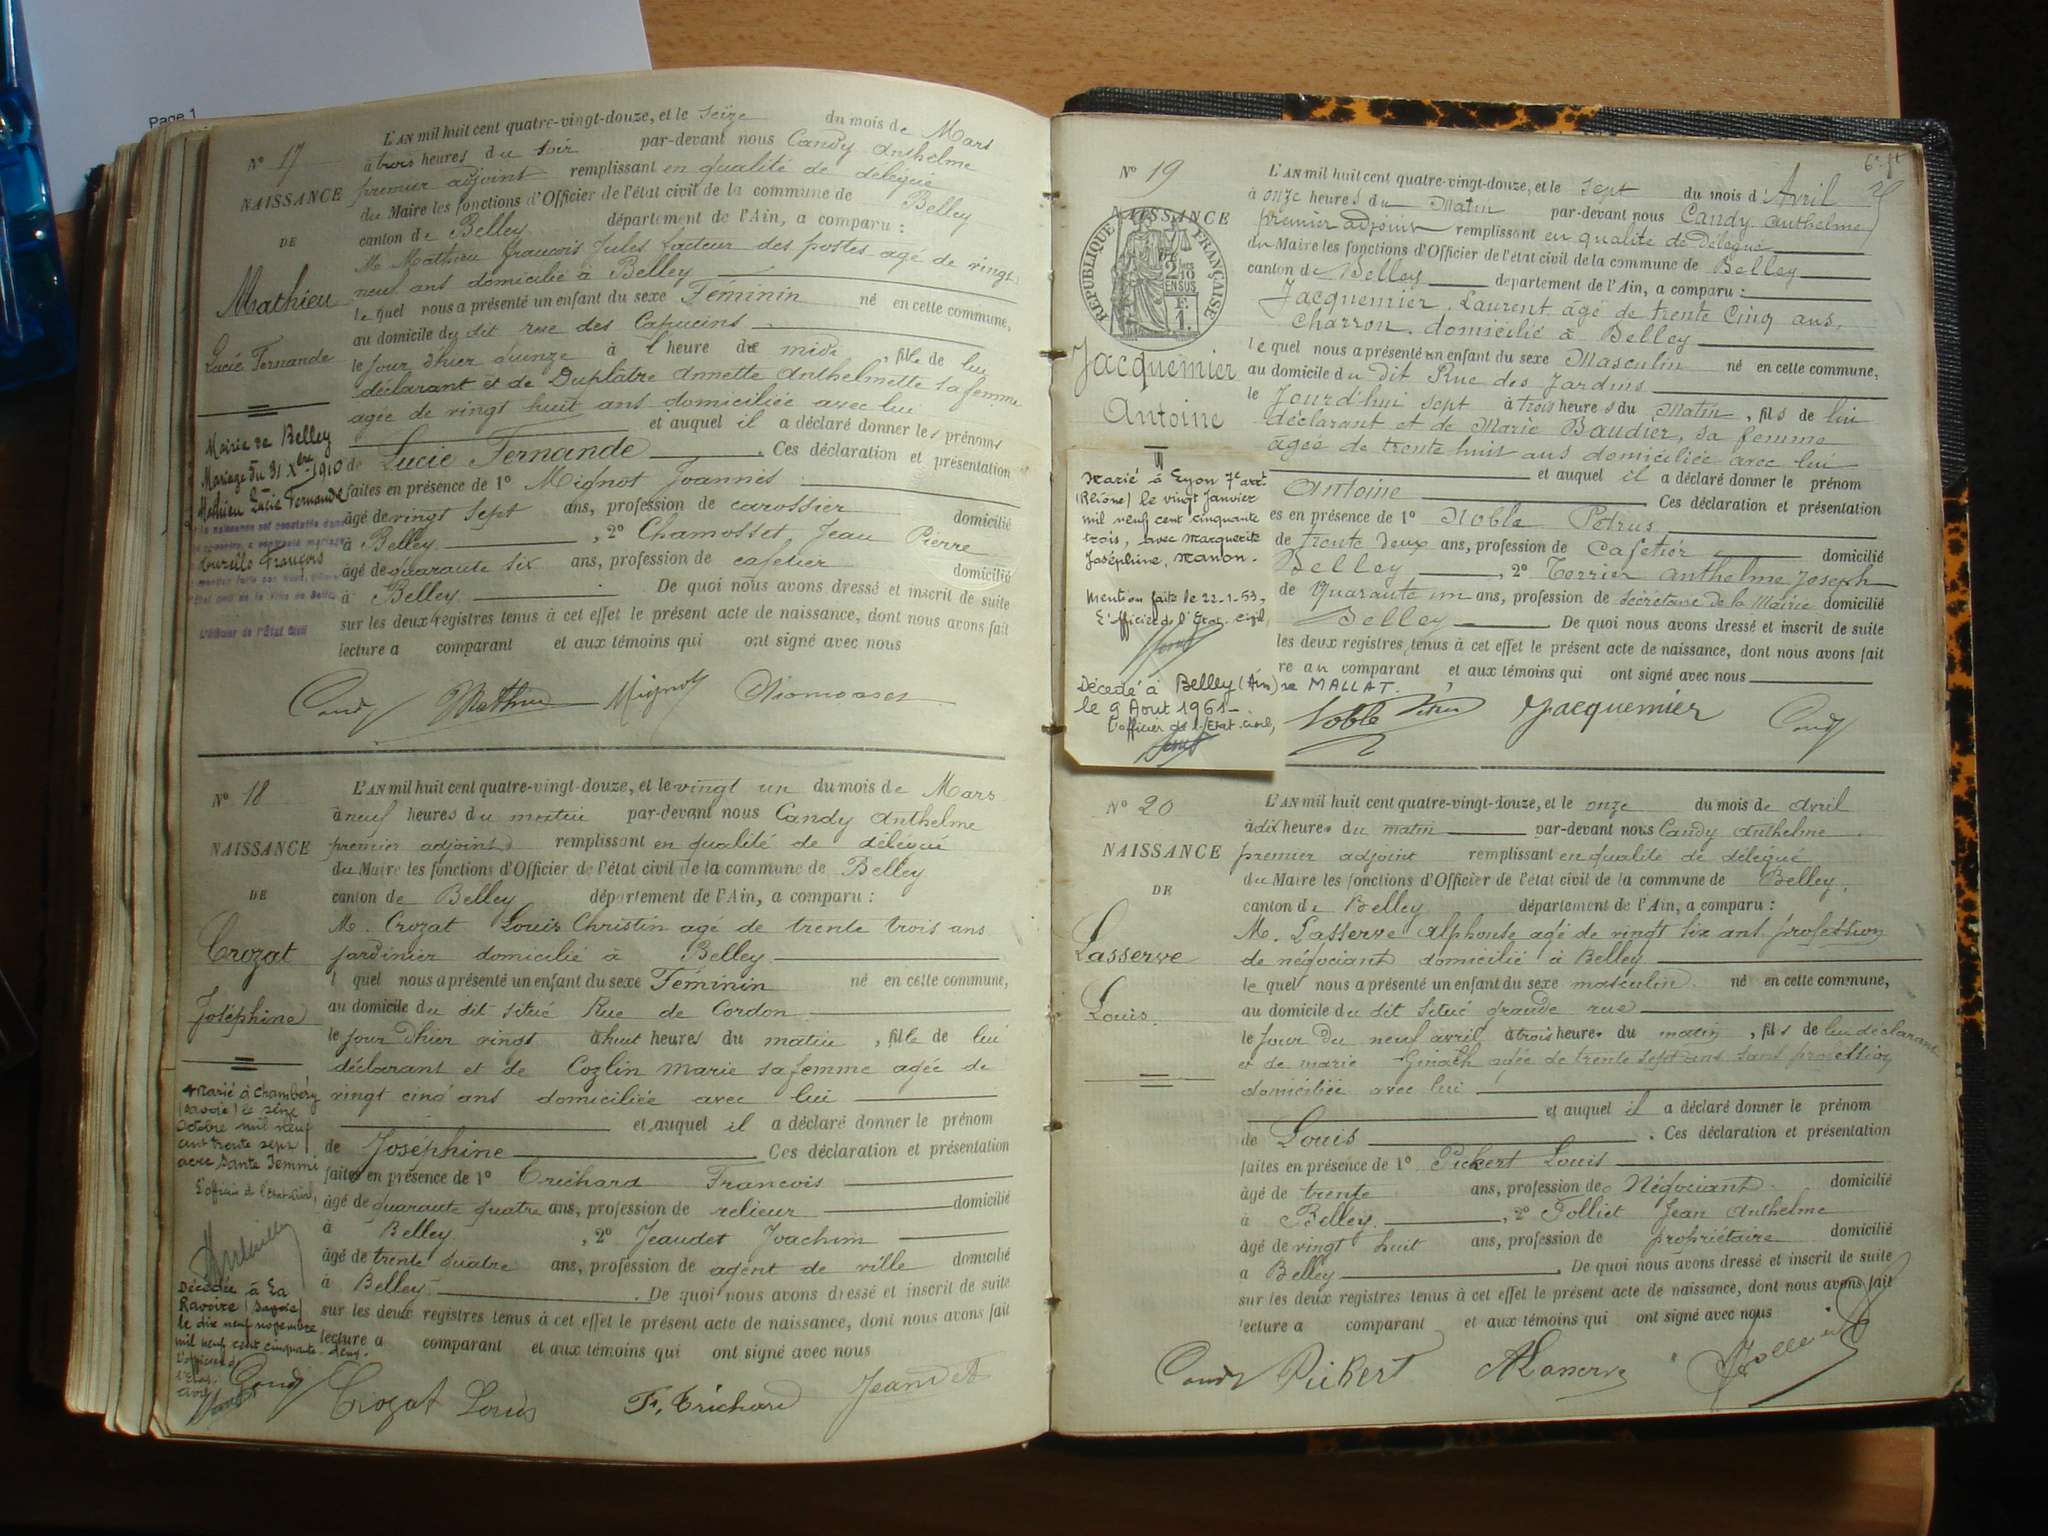 Page 1
L'AN mil huit cent quatre-vingt-douze, et le seize du mois de Mars
N° 17
à trois heures du soir par-devant nous Candy Anthelme
premier adjoint remplissant en qualité de délégué
NAISSANCE
du Maire les fonctions d'Officier de l'état civil de la commune de Belley
DE
canton de Belley département de l'Ain, a comparu :
M. Mathieu François Jules facteur des postes agé de vingt
neuf ans domicilié à Belley
Mathieu
le quel nous a présenté un enfant du sexe Féminin né en cette commune,
au domicile du dit rue des Capucins
Lucie Fernande
le jour d'hier quinze à l heure de midi, fille de lui
déclarant et de Duplatre Annette Anthelmette sa femme
agée de vingt huit ans domiciliée avec lui
et auquel il a déclaré donner les prénoms
de Lucie Fernande. Ces déclaration et présentation
Mairie de Belley
Mariage du 31 Xbre 1910
Mathieu Lucie Fernande
faites en présence de 1° Mignot Joannès
âgé de vingt sept ans, profession de carossier domicilié
à Belley, 2° Chamosset Jean Pierre
François
âgé de quarante six ans, profession de cafetier domicilié
à Belley. De quoi nous avons dressé et inscrit de suite
sur les deux registres tenus à cet effet le présent acte de naissance, dont nous avons fait
L'Officier de l'État Civil
lecture a comparant et aux témoins qui ont signé avec nous
Candy Mathieu Mignot Chamosset
L'AN mil huit cent quatre-vingt-douze, et le vingt un du mois de Mars
N° 18
à neuf heures du matin par-devant nous Candy Anthelme
NAISSANCE
premier adjoint remplissant en qualité de délégué
du Maire les fonctions d'Officier de l'état civil de la commune de Belley
DE
canton de Belley département de l'Ain, a comparu :
M. Crozat Louis Christin agé de trente trois ans
Crozat
jardinier domicilié à Belley
l quel nous a présenté un enfant du sexe Féminin né en cette commune,
Joséphine
au domicile du dit situé Rue de Cordon
le jour d'hier vingt à huit heures du matin, fille de lui
déclarant et de Cozlin Marie sa femme agée de
vingt cinq ans domiciliée avec lui
Marié à Chambéry
(Savoie) le seize
Octobre mil neuf
cent trente sept
avec Sante Temmi
L'officier de l'Etat Civil,
et auquel il a déclaré donner le prénom
de Joséphine Ces déclaration et présentation
faites en présence de 1° Trichard François
âgé de quarante quatre ans, profession de relieur domicilié
à Belley, 2° Jeaudet Joachim
âgé de trente quatre ans, profession de agent de ville domicilié
à Belley. De quoi nous avons dressé et inscrit de suite
Décédée à La
Ravoire (Savoie)
le dix neuf novembre
mil neuf cent cinquante deux.
L'officier de
l'Etat
Civil
sur les deux registres tenus à cet effet le présent acte de naissance, dont nous avons fait
lecture a comparant et aux témoins qui ont signé avec nous
Candy Crozat Louis F. Trichard Jeaudet
N° 19
L'AN mil huit cent quatre-vingt-douze, et le sept du mois d'Avril
à onze heures du matin par-devant nous Candy Anthelme
NAISSANCE
premier adjoint remplissant en qualité de Délégué
du Maire les fonctions d'Officier de l'état civil de la commune de Belley
REPUBLIQUE FRANÇAISE
canton de Belley département de l'Ain, a comparu :
Jacquemier Laurent âgé de trente cinq ans,
charron domicilié à Belley
le quel nous a présenté un enfant du sexe Masculin né en cette commune,
Jacquemier
au domicile du dit Rue des Jardins
Antoine
le Jourd'hui sept à trois heures du matin, fils de lui
déclarant et de Marie Baudier, sa femme
agée de trente huit ans domiciliée avec lui
et auquel il a déclaré donner le prénom
Antoine Ces déclaration et présentation
Marié à Lyon 7e arrt
(Rhône) le vingt Janvier
mil neuf cent cinquante
trois, avec Marguerite
Joséphine, Manon.
Mention faite le 22-1-53,
L'Officier de l'Etat Civil,
es en présence de 1° Noble Petrus
de trente deux ans, profession de Cafetier domicilié
Belley, 2° Terrier Anthelme Joseph
de Quarante un ans, profession de Secrétaire de la Mairie domicilié
Belley De quoi nous avons dressé et inscrit de suite
les deux registres tenus à cet effet le présent acte de naissance, dont nous avons fait
re au comparant et aux témoins qui ont signé avec nous
Décédé à Belley (Ain)
le 9 Aout 1961
L'officier de l'Etat civil,
MALLAT.
Noble Jacquemier Candy
N° 20
L'AN mil huit cent quatre-vingt-douze, et le onze du mois de Avril
à dix heures du matin par-devant nous Candy Anthelme
NAISSANCE
premier adjoint remplissant en qualité de délégué
DE
du Maire les fonctions d'Officier de l'état civil de la commune de Belley
canton de Belley département de l'Ain, a comparu :
M. Lasserve Alphonse agé de vingt six ans profession
Lasserve
de négociant domicilié à Belley
le quel nous a présenté un enfant du sexe masculin né en cette commune,
Louis
au domicile du dit situé grande rue
le Jour du neuf avril à trois heures du matin, fils de lui déclarant
et de Marie agée de trente sept ans sans profession
domiciliée avec lui
et auquel il a déclaré donner le prénom
de Louis. Ces déclaration et présentation
faites en présence de 1° Pickert Louis
âgé de trente ans, profession de Négociant domicilié
à Belley, 2° Folliet Jean Anthelme
âgé de vingt huit ans, profession de propriétaire domicilié
a Belley. De quoi nous avons dressé et inscrit de suite
sur les deux registres tenus à cet effet le présent acte de naissance, dont nous avons fait
lecture a comparant et aux témoins qui ont signé avec nous
Candy Pickert ALasserve Folliet